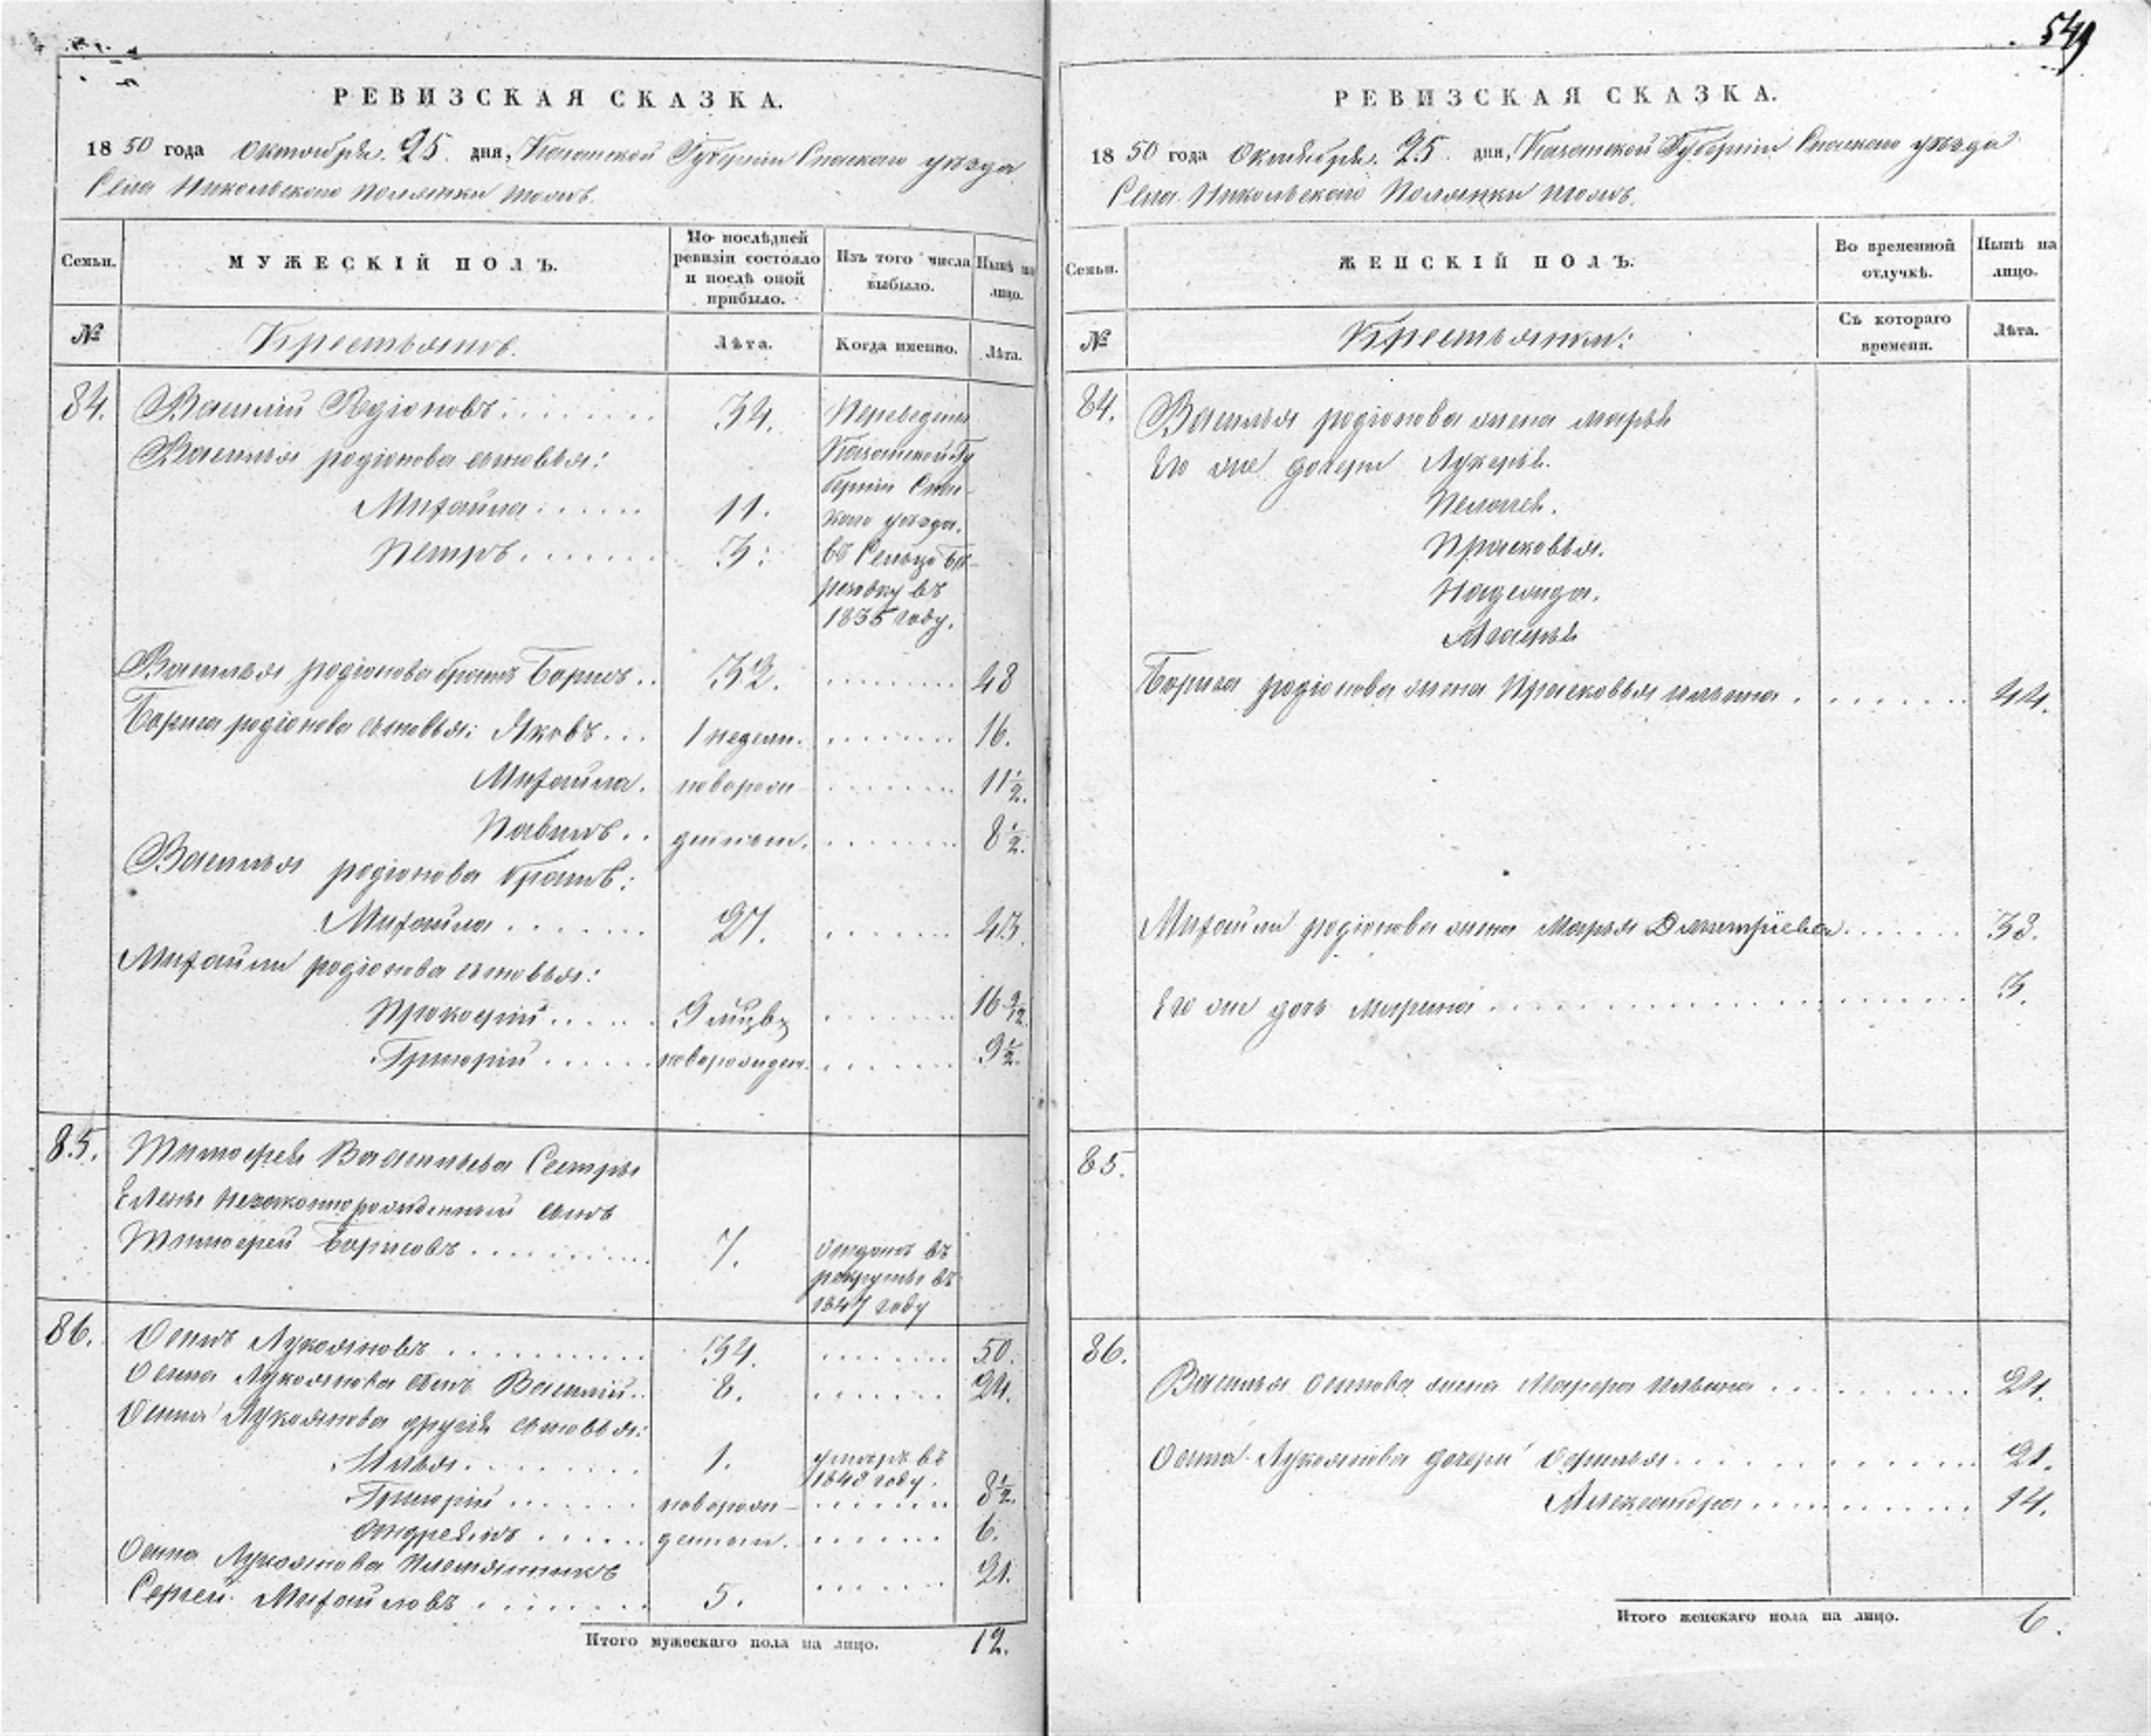 549
РЕВИЗСКАЯ СКАЗКА.
1850 года Октября 25 дня, Казанской Губерніи Спаскаго уѣзда
Села Никольскаго Полянки тожъ.
Семьи.
МУЖЕСКІЙ ПОЛЪ.
По послѣдней ревизіи состояло и послѣ оной прибыло.
Изъ того числа выбыло.
Нынѣ на лицо.
№
Крестьяновъ.
Лѣта.
Когда именно.
Лѣта.
84. Василій Родіоновъ 34. Переведены
Василья родіонова сыновья: Казанской Гу
берніи Спа-
Михайла 11. скаго уѣзда.
Петръ 3: въ Сельцо
въ
1835 году.
Василья родіонова братъ Борисъ 32. 48
Бориса родіонова сыновья: Яковъ 1 недели. 16.
Михайла. новорож- 11 1/2.
Павелъ деннои. 8 1/2.
Василья родіонова братъ:
Михайла 27. 43.
Михайлы родіонова сыновья:
Прокофий 9 16 9/12.
Григорій новорожден. 9 1/2.
85. Тимофея Васильева Сестры
Елены Незаконнорожденный сынъ
Тимофей Борисовъ 7. Отданъ въ
рекруты въ
1847 году
86. Осипъ Лукояновъ 34. 50.
Осипа Лукоянова сынъ Василій 8. 24.
Осипа Лукоянова другіе сыновья:
Илья 1. умеръ въ
1848 году.
Григорій новорож- 8 1/2.
Андреянъ деннои. 6.
Осипа Лукоянова племянникъ
Сергей Михайловъ 5. 21.
Итого мужескаго пола на лицо. 12.
РЕВИЗСКАЯ СКАЗКА.
1850 года Октября 25 дня, Казанской Губерніи Спаскаго уѣзда
Села Никольскаго Полянки тожъ.
Семьи.
ЖЕНСКІЙ ПОЛЪ.
Во временной отлучкѣ.
Нынѣ на лицо.
№
Крестьянки:
Съ котораго времени.
Лѣта.
84. Василья родіонова жена Марья
Его же дочери Лукерья.
Пелагея.
Прасковья.
Надежда.
Марья
Бориса родіонова жена Прасковья Ильина 44.
Михайлы родіонова жена Марья Дмитріева 38.
Его же дочь Марина 3.
85.
86.
Василья Осипова жена Марфа Ильина 24.
Осипа Лукоянова дочери Офимья 21.
Александра 14.
Итого женскаго пола на лицо. 6.